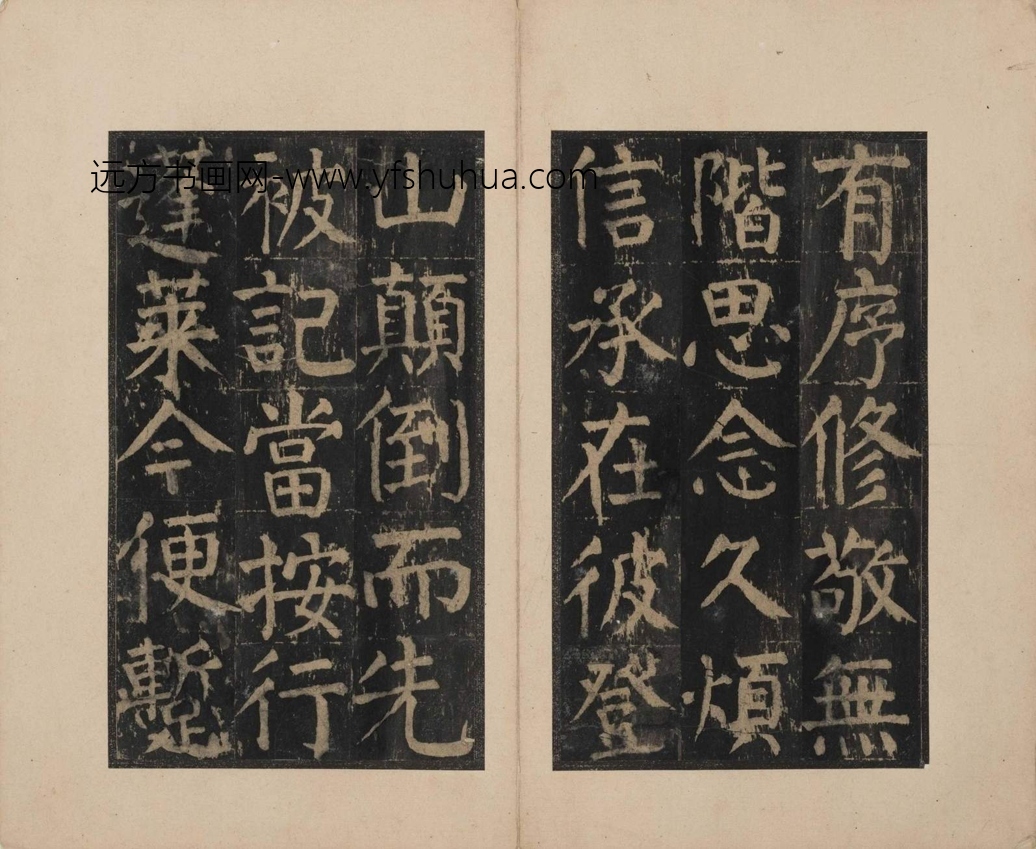 有序修敬無
階思念久煩
信承在彼登
山顛倒而先
被記當按行
蓬萊今便蹔
远方书画网-www.yfshuhua.com